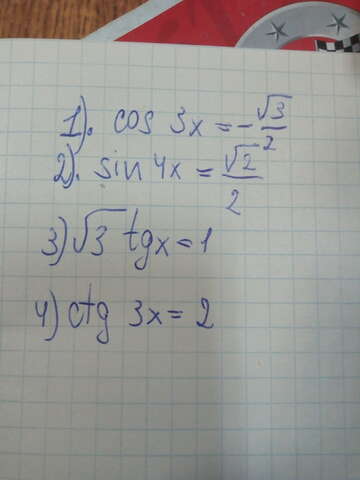 1). cos 3x = -√3/2
2). sin 4x = √2/2
3) √3 tgx = 1
4) ctg 3x = 2